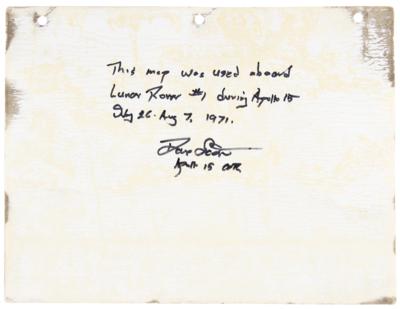 This map was used aboard
Lunar Rover #1 during Apollo 15
July 26-Aug 7, 1971.
Dave Scott
Apollo 15 CDR